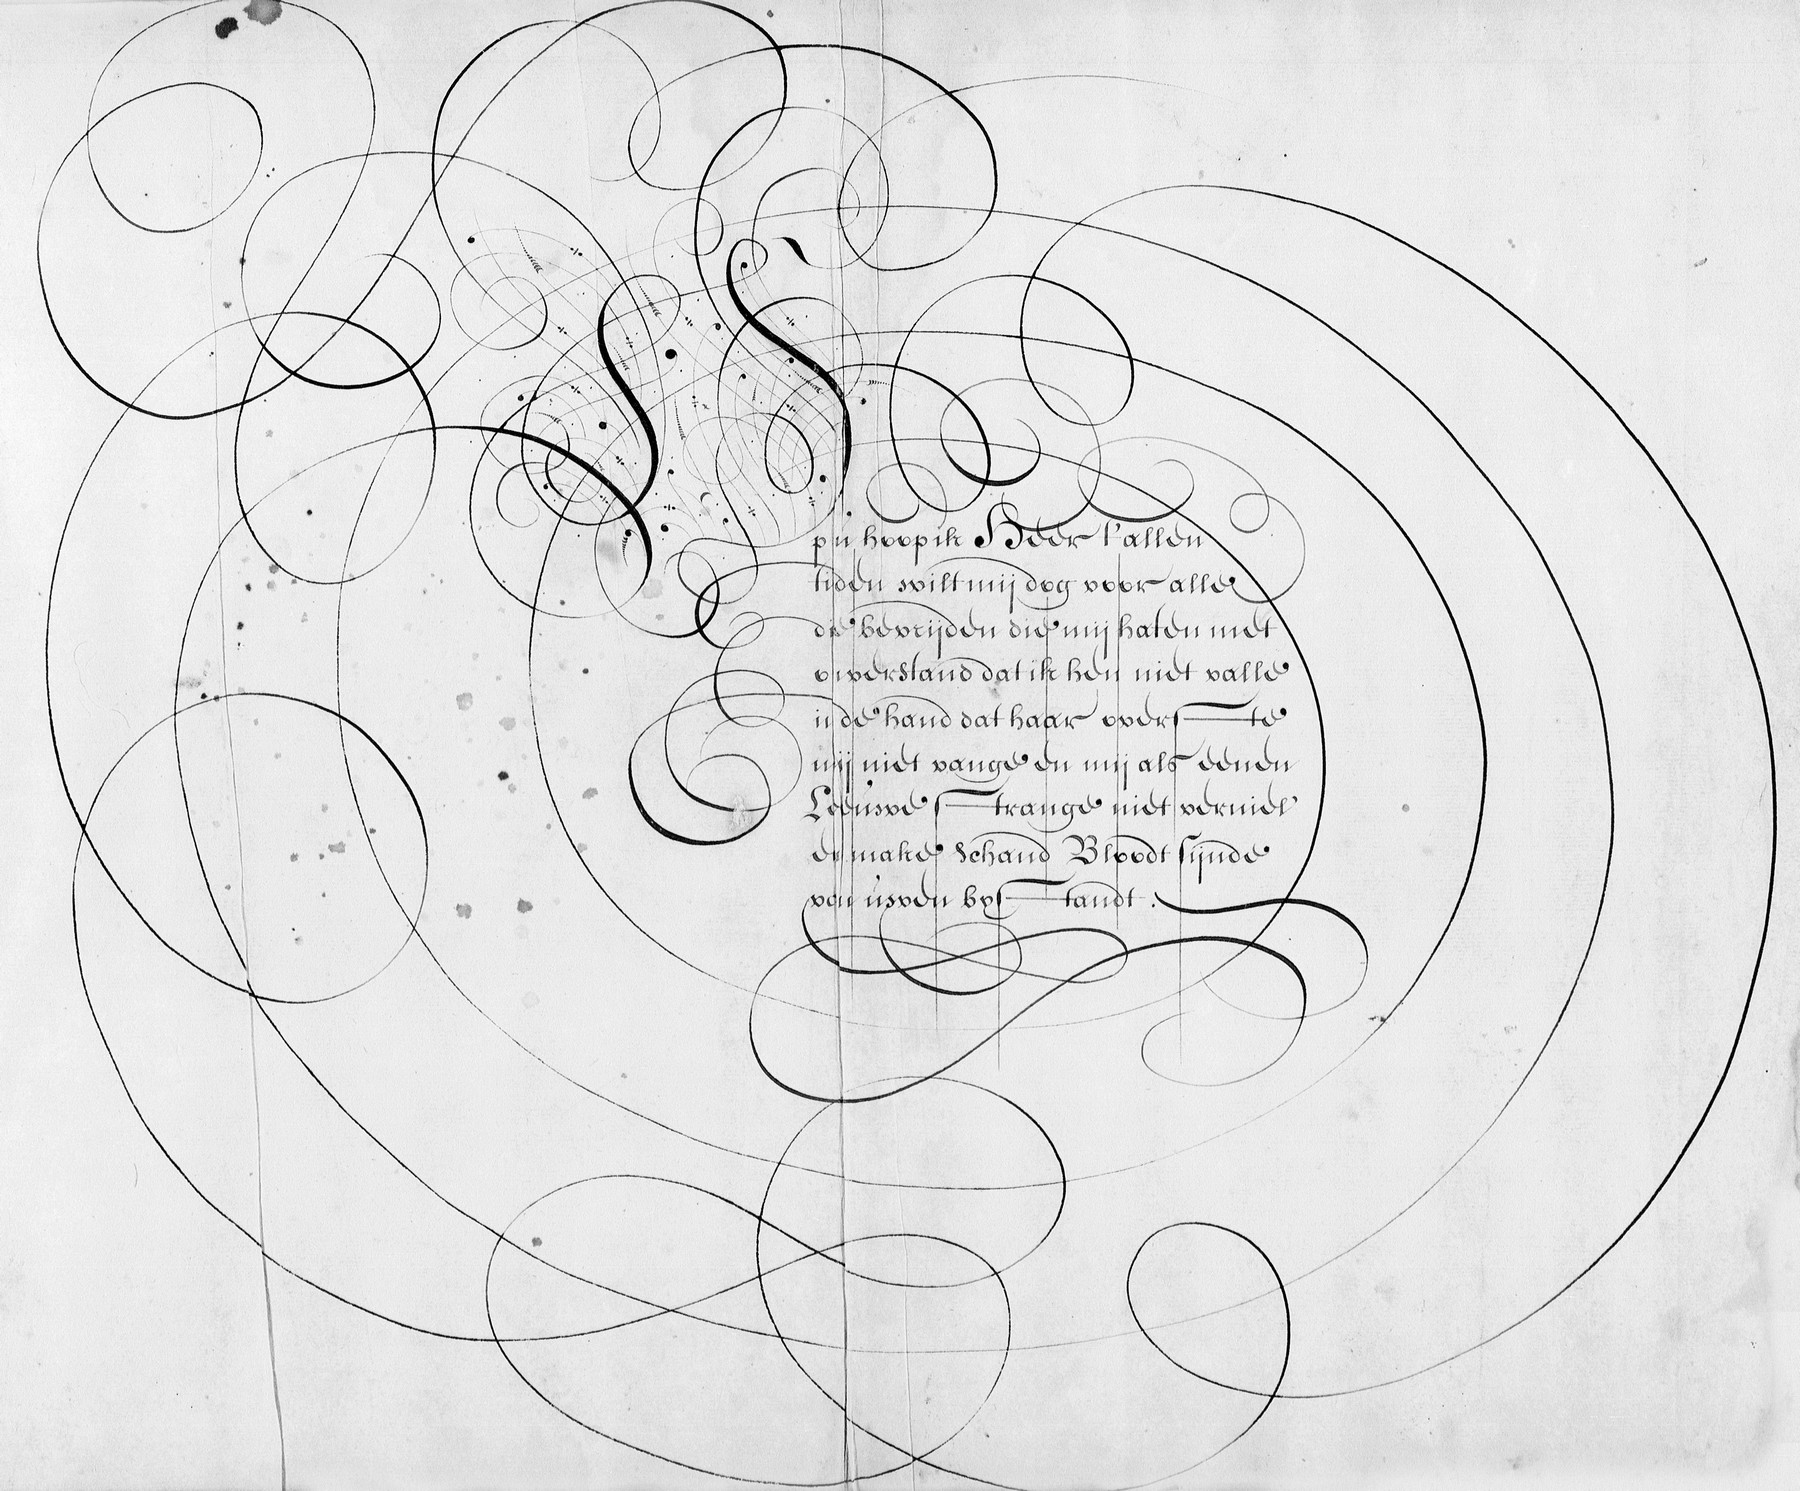 Op ü hoop ik Heer t'allen
tiden wilt mij dog voor alle
die bevrijden die mij haten met
onverstand dat ik hen niet valle
in de hand dat haar overste
mij niet vange en mij als eenen
Leeüwe strange niet verniel'
en make Schand Bloodt sijnde
van üwen bystandt.